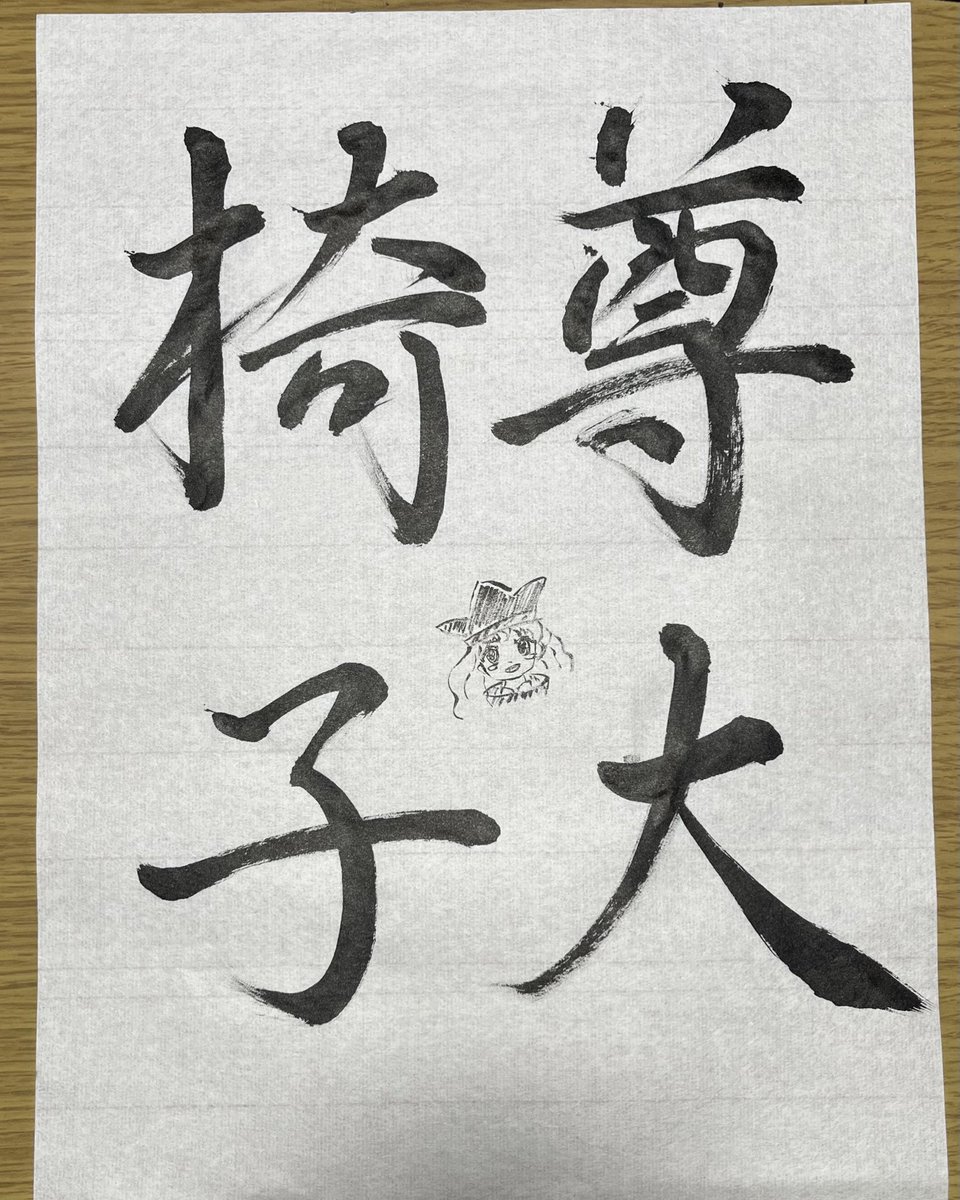 尊大
椅子